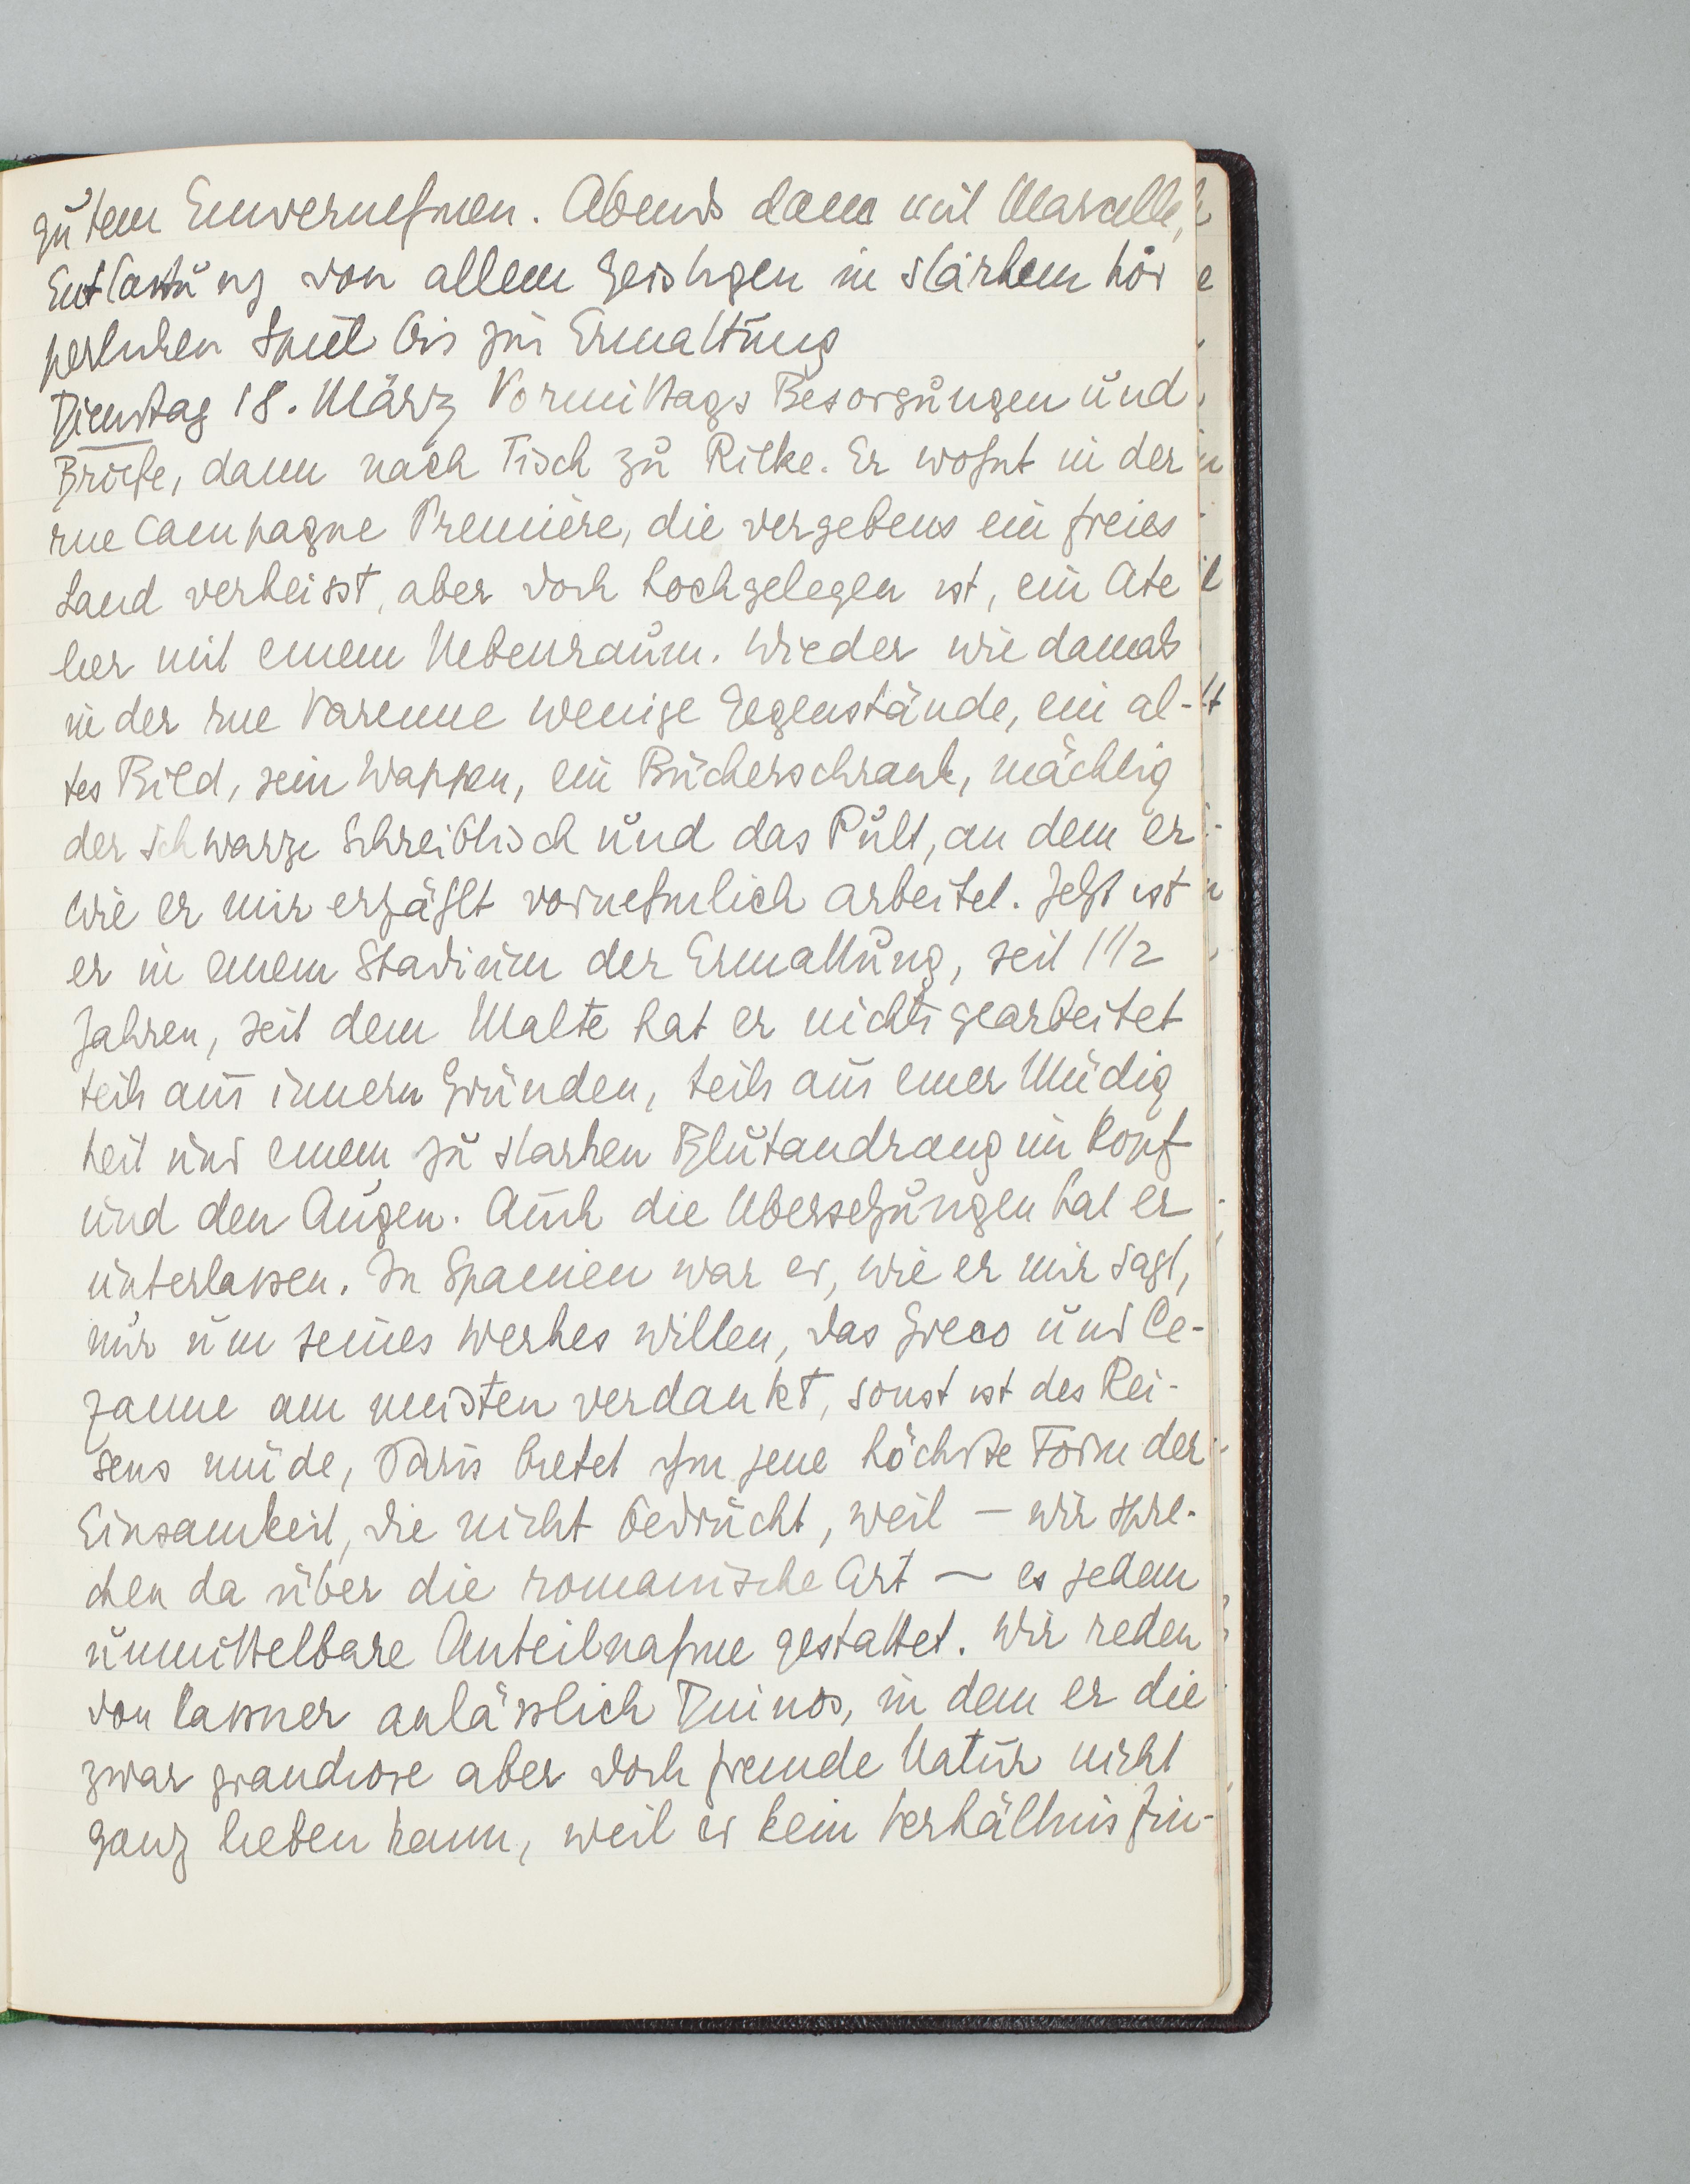 gutem Einvernehmen. Abends dann mit Marcelle,
Entlastung von allem Geistigen in starkem kör
perlichen Spiel bis zur Ermattung
Dienstag 18. März Vormittags Besorgungen und
Briefe, dann nach Tisch zu Rilke. Er wohnt in der
rue Campagne Première, die vergebens ein freies
Land verheisst, aber doch hochgelegen ist, ein Ate
lier mit einem Nebenraum. Wieder wie damals
in der rue Varenne wenige Gegenstände, ein al-
tes Bild, sein Wappen, ein Bücherschrank, mächtig
der schwarze Schreibtisch und das Pult, an dem er
wie er mir erzählt vornehmlich arbeitet. Jetzt ist
er in einem Stadium der Ermattung, seit 1 1/2
Jahren, seit dem Malte hat er nichts gearbeitet
teils aus innern Gründen, teils aus einer Müdig
keit und einem zu starken Blutandrang im Kopf
und den Augen. Auch die Übersetzungen hat er
unterlassen. In Spanien war er, wie er mir sagt,
nur um seines Werkes willen, das Greco und Ce-
zanne am meisten verdankt, sonst ist des Rei-
sens müde, Paris bietet ihm jene höchste Form der
Einsamkeit, die nicht bedrückt, weil – wir spre-
chen da über die romanische Art – es jedem
unmittelbare Anteilnahme gestattet. Wir reden
von Kassner anlässlich Duinos, in dem er die
zwar grandiose aber doch fremde Natur nicht
ganz lieben kann, weil er kein Verhältnis fin-